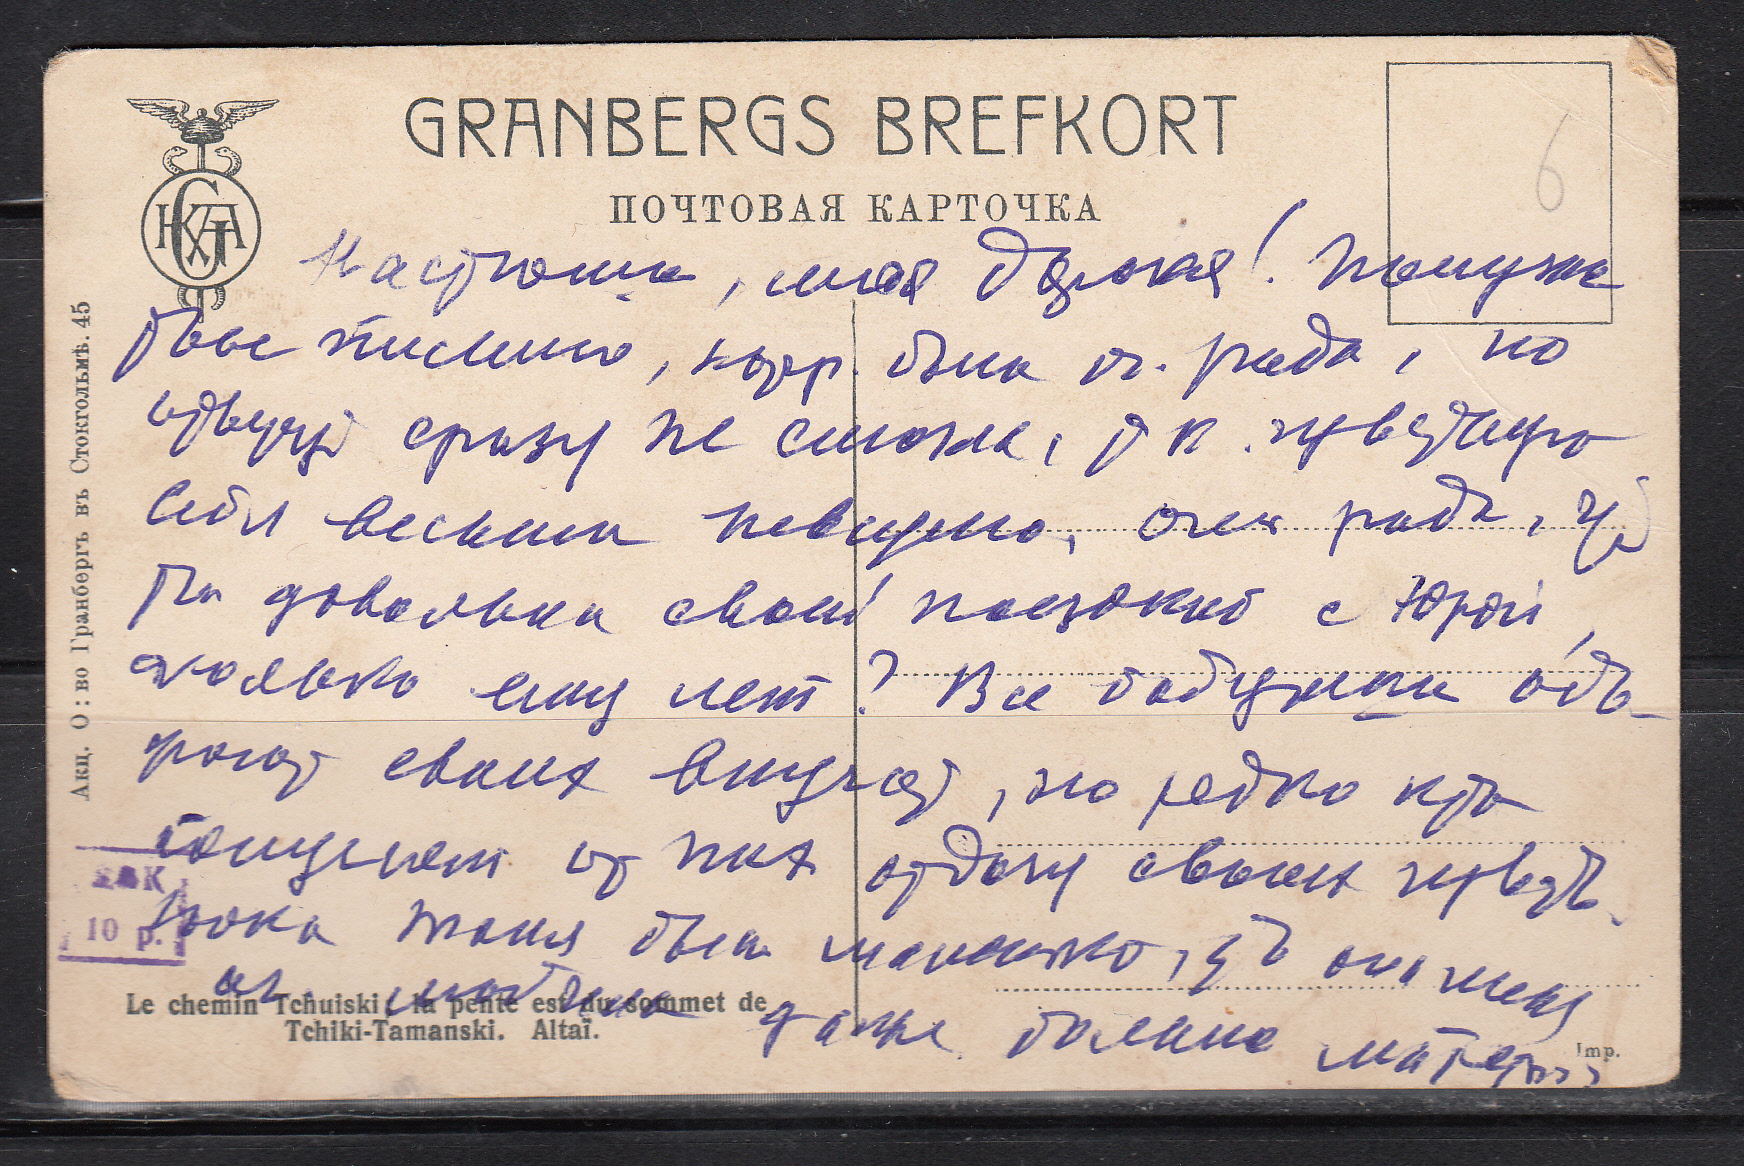 GRANBERGS BREFKORT
ПОЧТОВАЯ КАРТОЧКА
6
Настюша, моя дорогая! Получила
твое письмо, котор. была оч. рада, но
ответить сразу не смогла, т к. чувствую
себя весьма неважно, очень рада, что
ты довольна своей поездкой с Юрой,
сколько ему лет? Все бабушки обо-
жают своих внучат, но редко кто
получает от них отдачу своих чувств.
Пока Таня была маленькой, то она меня
оч. любила даже больше матери
Акц. О: во Гранбергъ въ Стокгольмѣ. 45
10 р.
Le chemin Tchuiski: la pente est du sommet de
Tchiki-Tamanski. Altaï.
Imp.